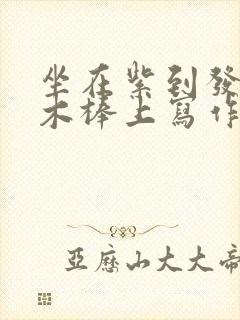 坐在紫到發
木棒上寫作
亞歷山大大帝